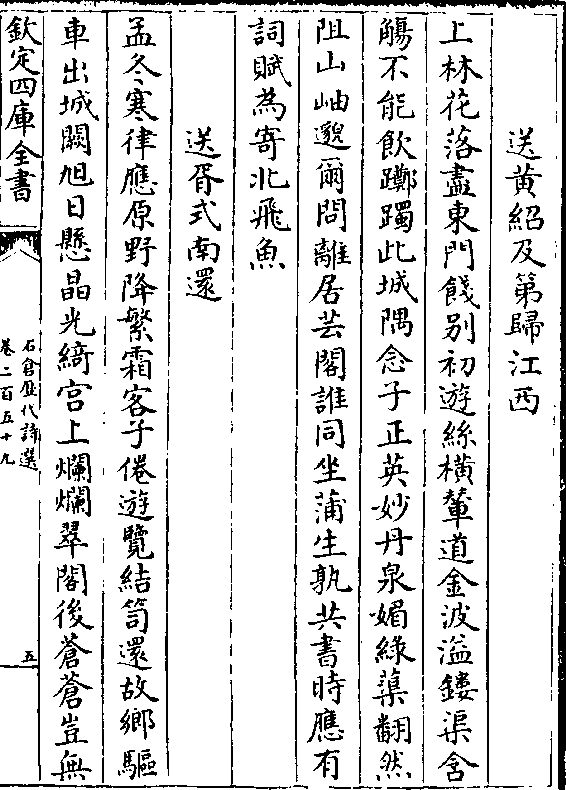 送黄紹及第歸江西
上林花落盡東門餞别初遊絲横輦道金波溢鏤渠含
觴不能飲躑躅此城隅念子正英妙丹泉媚綠蕖翻然
阻山岫邈爾問離居芸閣誰同坐蒲生孰共書時應有
詞賦為寄北飛魚
送胥式南還
孟冬寒律應原野降繁霜客子倦遊覽結笥還故鄉驅
車出城闕旭日懸晶光綺宫上爛爛翠閣後蒼蒼豈無
欽定四庫全書
石倉歴代詩選
卷二百五十九
五